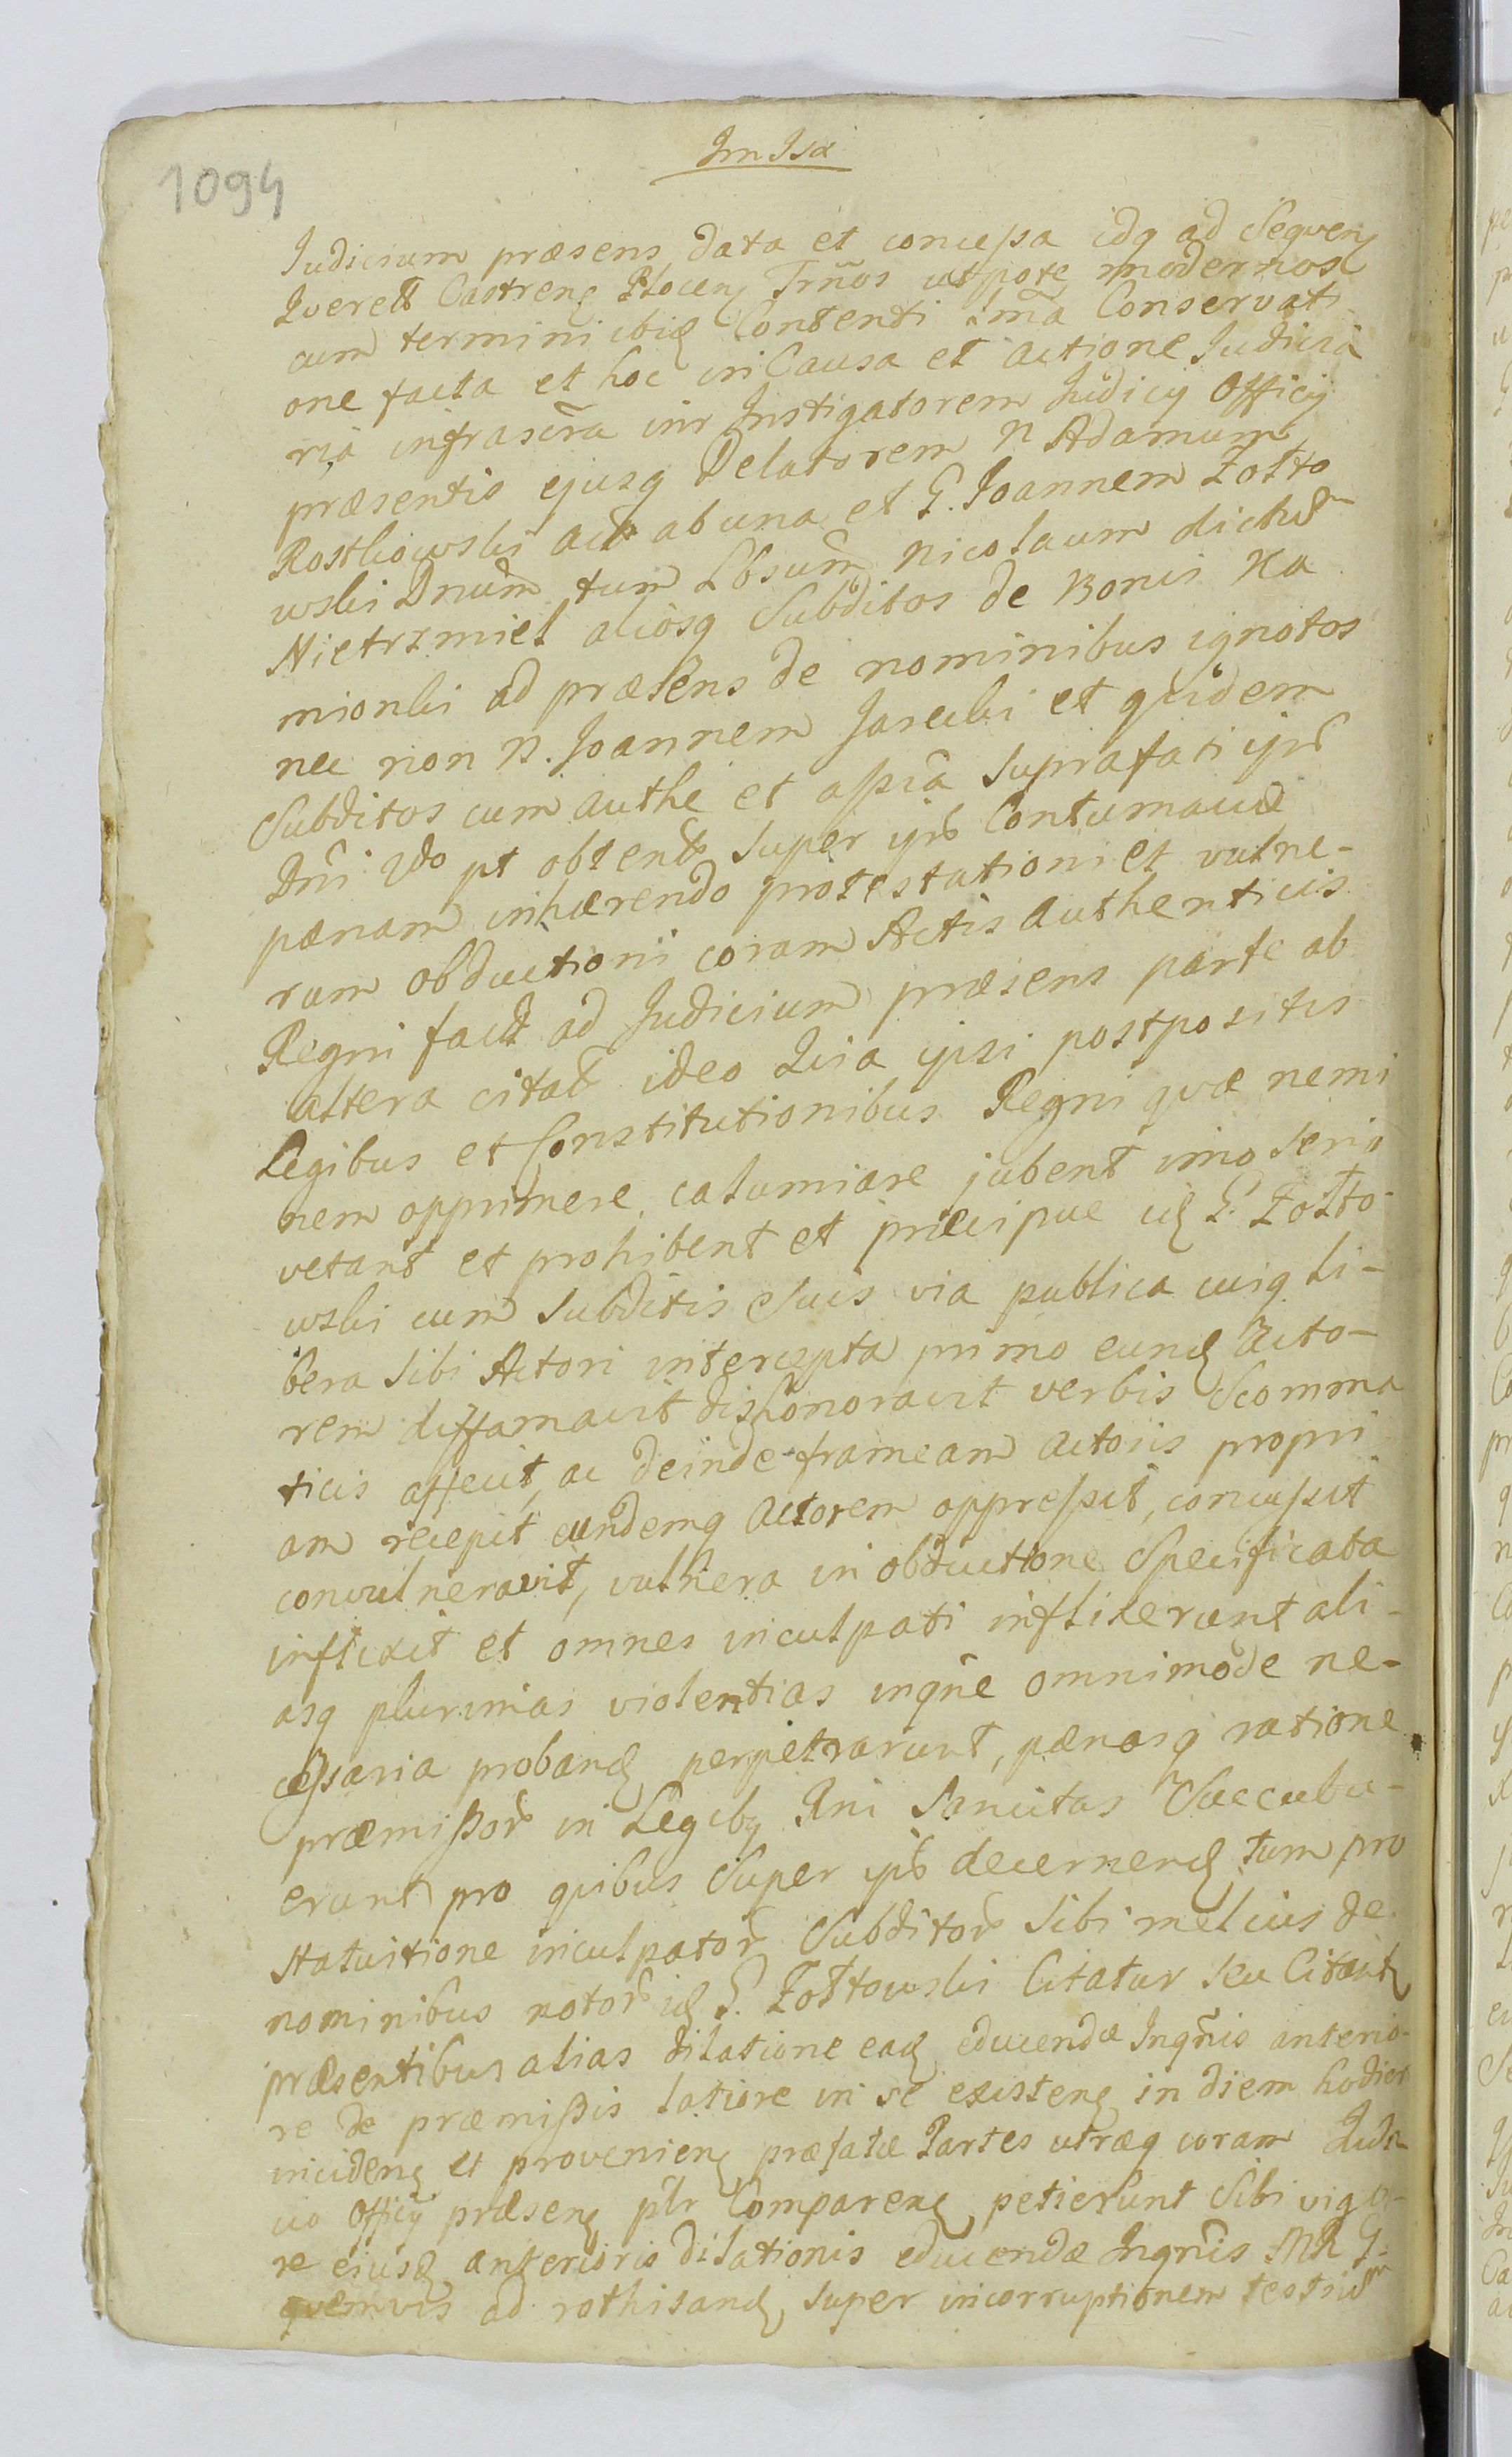 1094
Judicium præsens data et concessa idq ad Sequen
Querell Castren Plocen Trños utpote modernos
cum termini ibid Contenti Conservati
one facta et hoc in Causa et actione Judicia
ria infrascra inr Instigatorem Judicij Officij
præsentis ejusq Delatorem N Adamum
Rostkowski ab una et G. Joannem Zołto
wski Dnum tum Lbsum Nicolaum dictu
Nietrzmiel aliosq Subditos de Bonis Ka
mionki ad præsens de nominibus ignotos
nec non N. Joannem Jarecki et quidem
Subditos cum authe et assia suprafati
Dni obtent super ipš Contumaciæ
pænam inhærendo protestationi et vulne-
rum obductioni coram Actis authenticis
Regni fact ad Judicium præsens parte ab
altera citat ideo Quia ipsi postpositis
Legibus et Constitutionibus Regni quæ nemi
nem opprimere, calumiare jubent imo serio
vetant et prohibent et præcipue id G. Zołto-
wski cum subditis suis via publica cuiq li-
bera sibi Actori intercepta primo eund acto-
rem diffamavit dishonoravit verbis Scomma
ticis affecit, ac deinde frameam actoris propri
am recepit eundemq actorem oppressit, concussit
convulneravit, vulnera in obductione Specificata
inflixit et omnes inculpati inflixerunt ali-
asq plurimas violentias inqñe omnimode ne-
cessaria proband perpetrarunt, pænasq ratione
præmissor in Legibq Rni sancitas Succubu-
erunt pro quibus super ipš decernend tum pro
statuitione inculpator Subditor sibi melius de
nominibus notor id G. Zołtowski Citatur seu Citant
præsentibus alias dilatione ead educendæ Inqñis anterio-
re de præmissis latiore in se existen in diem hodier
inciden et provenien præfatæ Partes utræq coram Judi-
cio Officij præsen plr Comparen petierunt sibi vigo-
re eiusd anterioris dilationis educendæ Inqñis MR G.
quemvis ad rothisand super incorruptionem testiu